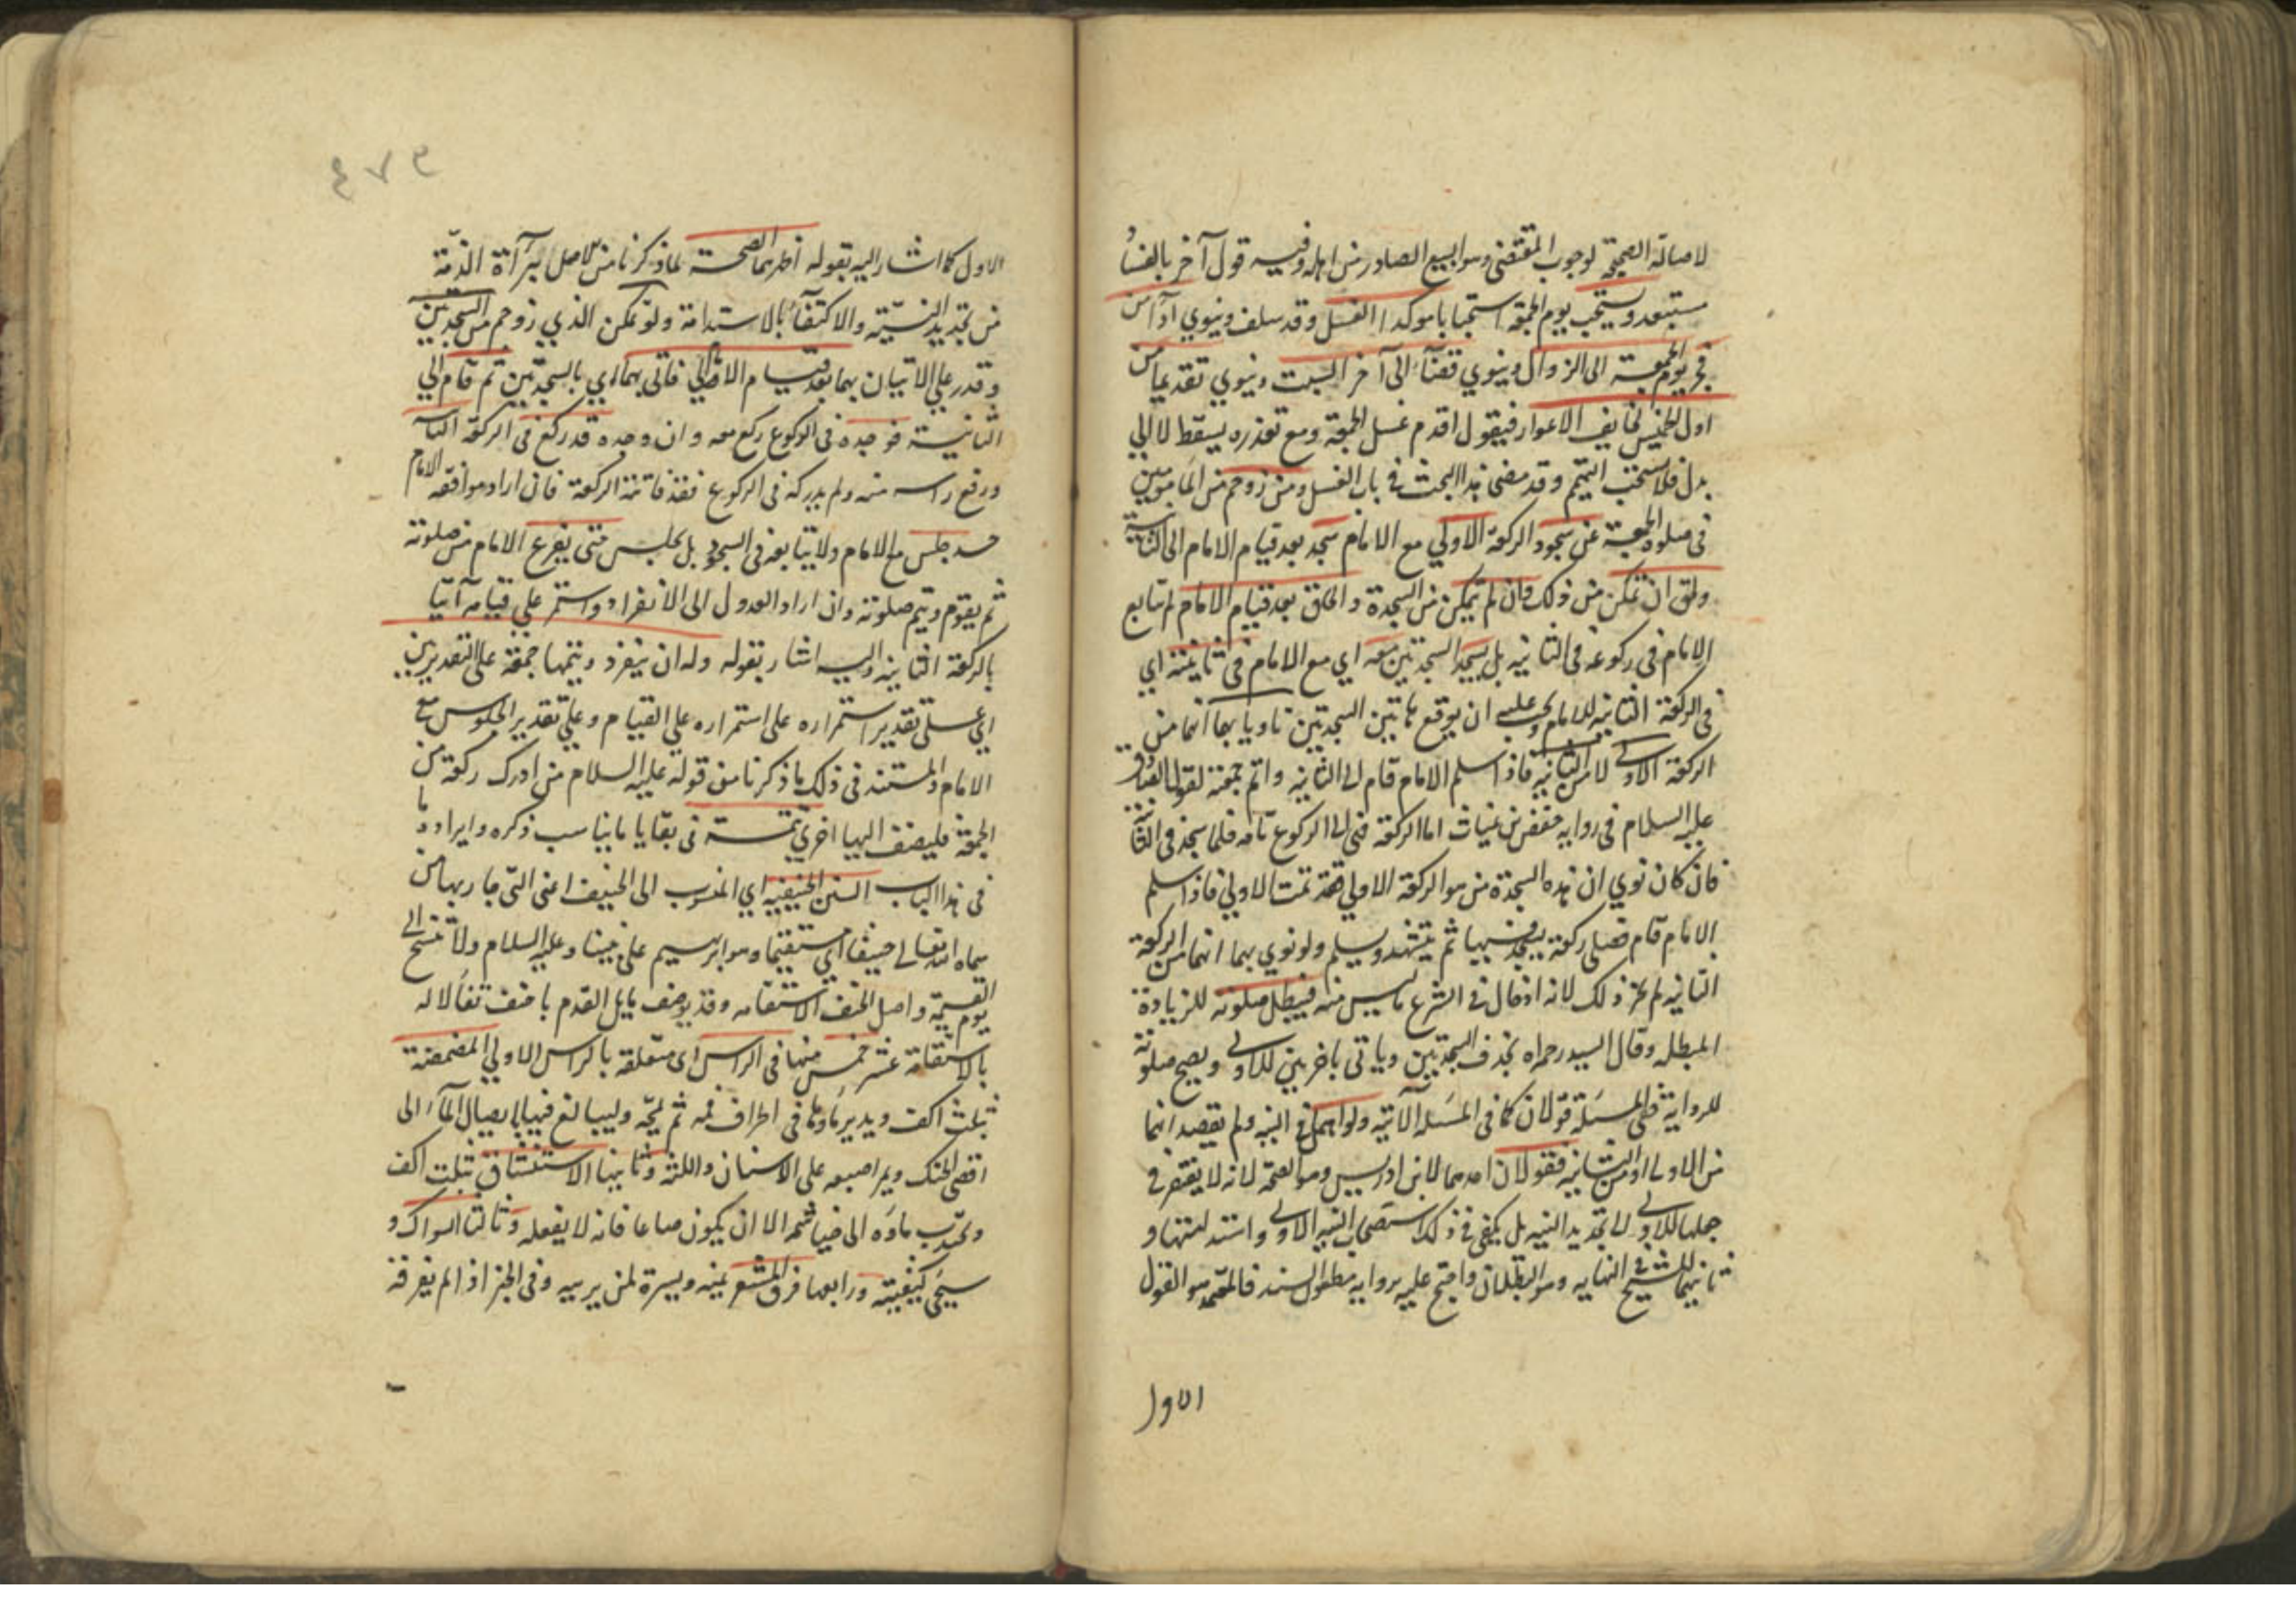 لاصالة الصحة لوجوب المقتضى وهو البيع الصادر من اهله وفيه قول آخر بالفساد
مستبعد ويستحب يوم الجمعة استحبابا موكدا الغسل وقد سلف وينوي اداء من
فجر يوم الجمعة الى الزوال وينوي قضاء الى آخر السبت وينوي تقديما من
اول الخميس لخايف الاعواز فيقول اقدم غسل الجمعة ومع تعذره يسقط لا الى
بدل فلا يستحب التيمم وقد مضى هذا البحث في باب الغسل ومن زوحم من المامومين
في صلوة الجمعة عن سجود الركعة الاولى مع الامام سجد بعد قيام الامام الى الثانية
ولحق ان تمكن من ذلك وان لم يتمكن من السجدة واللحاق بعد قيام الامام لم يتابع
الامام في ركوعه في الثانيه بل يسجد السجدتين معه اي مع الامام في ثانيته اي
في الركعة الثانيه للامام ويجب عليه ان يوقع هاتين السجدتين ناويا بهما انهما من
الركعة الاولى لا من الثانية فاذا سلم الامام قام الى الثانيه واتم جمعته لقول الصادق
عليه السلام في روايه حفص بن غياث اما الركعة فهي الى الركوع تامه فلما سجد في الثانية
فان كان نوى ان هذه السجدة من هو الركعة الاولى فقد تمت الاولى فاذا سلم
الامام قام فصلى ركعة يسجد فيها ثم يتشهد ويسلم ولو نوى بهما انهما من الركعة
الثانيه لم يجز ذلك لانه ادخال في الشرع ما ليس منه فيبطل صلوته للزيادة
المبطله وقال السيد رحمه الله يحذف السجدتين وياتي باخريين للاولى ويصح صلوته
للرواية ففي المسئلة قولان كما في المسئلة الآتيه ولو اهمل في النيه ولم يقصد انهما
من الاولى او من الثانيه فقولان احدهما لابن ادريس وهو الصحة لانه لا يفتقر في
جعلها للاولى الى تجديد النيه بل يكفى في ذلك استصحاب النيه الاولى واستدامتها و
ثانيهما للشيخ في النهايه وهو البطلان واحتج عليه بروايه السند فالمعتمد هو القول
الاول
٤٧٩
الاول كما اشار اليه بقوله اظهرهما الصحة لما ذكرنا من الاصل لبرآءة الذمة
من تجديد النية والاكتفآء بالاستدامة ولو تمكن الذي زوحم من السجدتين
وقدر على الاتيان بهما بعد قيام الامام فاتى بهما اي بالسجدتين ثم قام الى
الثانية فوجده في الركوع ركع معه وان وجده قد ركع في الركعة الثانيه
ورفع راسه منه ولم يدركه في الركوع فقد فاتته الركعة فان اراد موافقة الامام
جلس مع الامام ولا يتابعه في السجود بل يجلس حتى يفرغ الامام من صلوته
ثم يقوم ويتم صلوته وان اراد العدول الى الانفراد واستمر على قيامه آتيا
بالركعة الثانيه واليه اشار بقوله وله ان ينفرد ويتمها جمعة على التقديرين
اي على تقدير استمراره على استمراره على القيام وعلى تقدير الجلوس مع
الامام والمستند في ذلك ما ذكرنا من قوله عليه السلام من ادرك ركعة من
الجمعة فليضف اليها اخرى تتمة في بقايا ما يناسب ذكره وايراده
في هذا الباب السنن الحنيفيه اي المنسوب الى الحنيف اعنى التي جاء بها من
سماه الله تعالى حنيفا اي مستقيما وهو ابراهيم على نبينا وعليه السلام ولا تنسخ الى
يوم القيمة واصل الحنف الاستقامه وقد يوصف مايل القدم باحنف تفألا له
بالاستقامة عشر خمس منها في الراس اى متعلقه بالراس الاولى المضمضة
بثلث اكف ويدير ماءها في اطراف فمه ثم يمجه وليبالغ فيها بايصال المآء الى
اقصى الحنك ويمر اصبعه على الاسنان واللثه وثانيها الاستنشاق بثلث اكف
ويجذب ماءه الى خياشيمه الا ان يكون صائما فانه لا يفعله وثالثها السواك و
سيجى كيفيته ورابعها فرق الشعر يمينه ويسرة لمن يربيه وفى الخبر اذا لم يفرقه